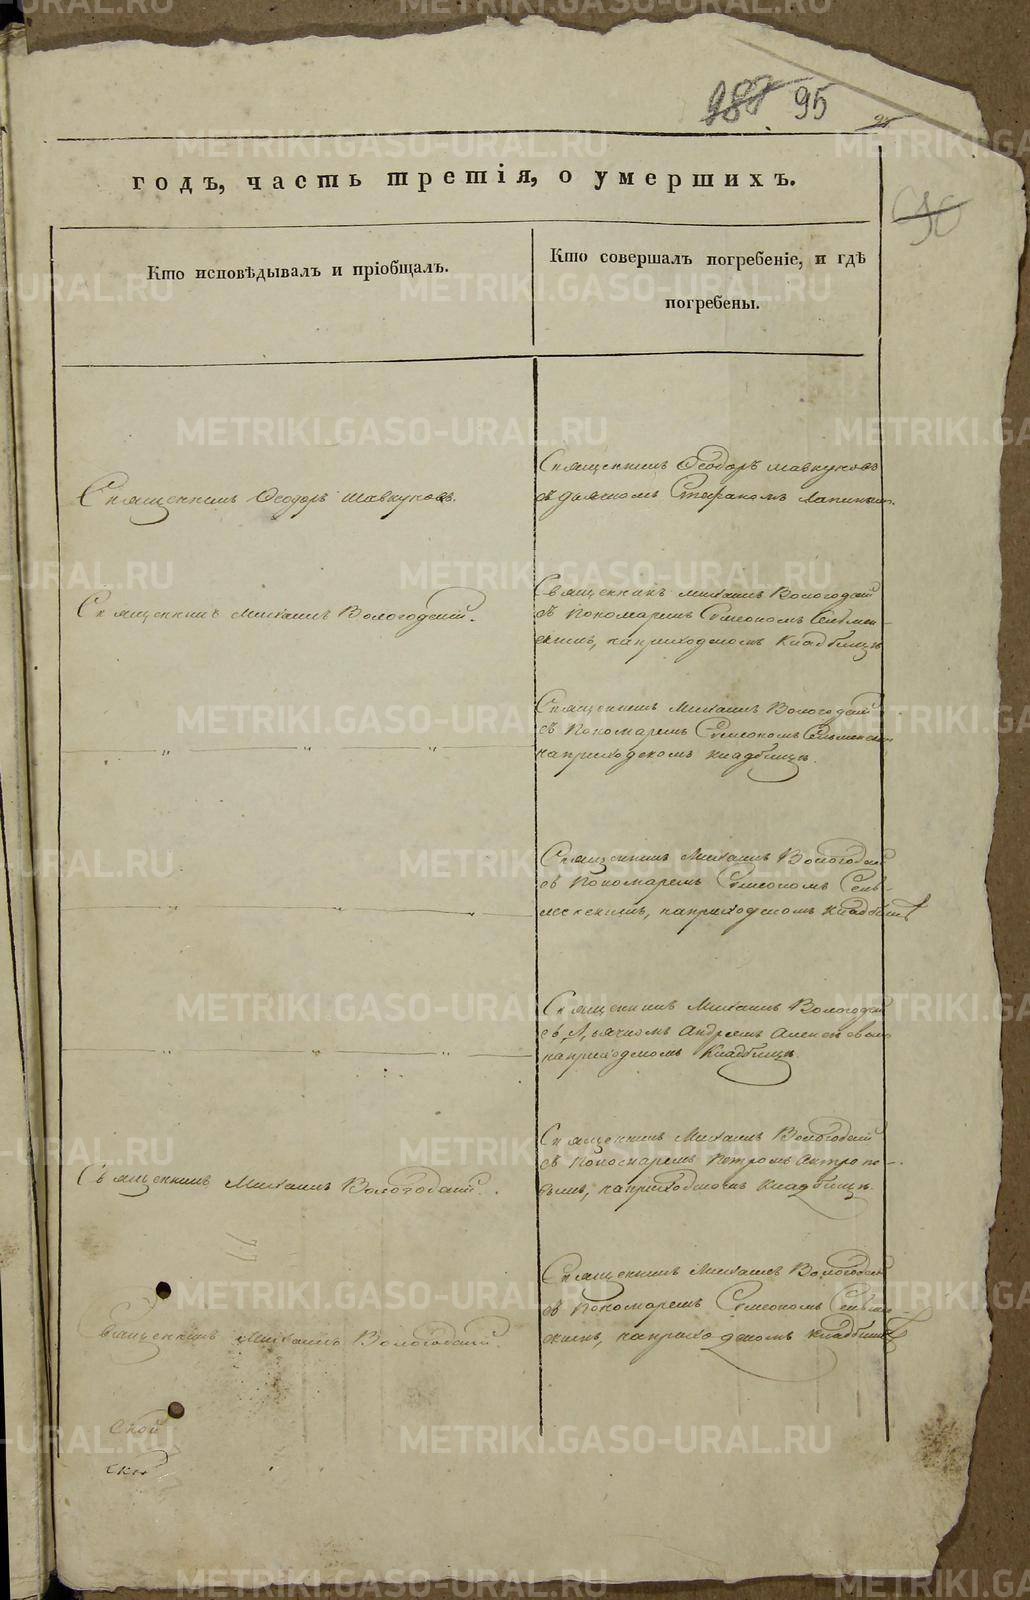 95
годъ, часть третія, о умершихъ.
Кто исповѣдывалъ и пріобщалъ.
Кто совершалъ погребеніе, и гдѣ
погребены.
Священникъ Ѳеодоръ Шавкуновъ.
Священникъ Ѳеодоръ Шавкуновъ
съ дьякономъ Стефаномъ
Священникъ Михаилъ Вологодскій.
Священникъ Михаилъ Вологодскій
съ Пономаремъ Симеономъ
на приходскомъ кладбищѣ
Священникъ Михаилъ Вологодскій
съ Пономаремъ Симеономъ
на приходскомъ кладбищѣ.
Священникъ Михаилъ Вологодскій
съ Пономаремъ Симеономъ
на приходскомъ кладбищѣ
Священникъ Михаилъ Вологодскій
съ Дьячкомъ Андреемъ
на приходскомъ кладбищѣ.
Священникъ Михаилъ Вологодскій.
Священникъ Михаилъ Вологодскій
съ Пономаремъ Петромъ
на приходскомъ кладбищѣ.
Священникъ Михаилъ Вологодскій.
Священникъ Михаилъ Вологодскій
съ Пономаремъ Симеономъ
на приходскомъ кладбищѣ
ской
METRIKI.GASO-URAL.RU